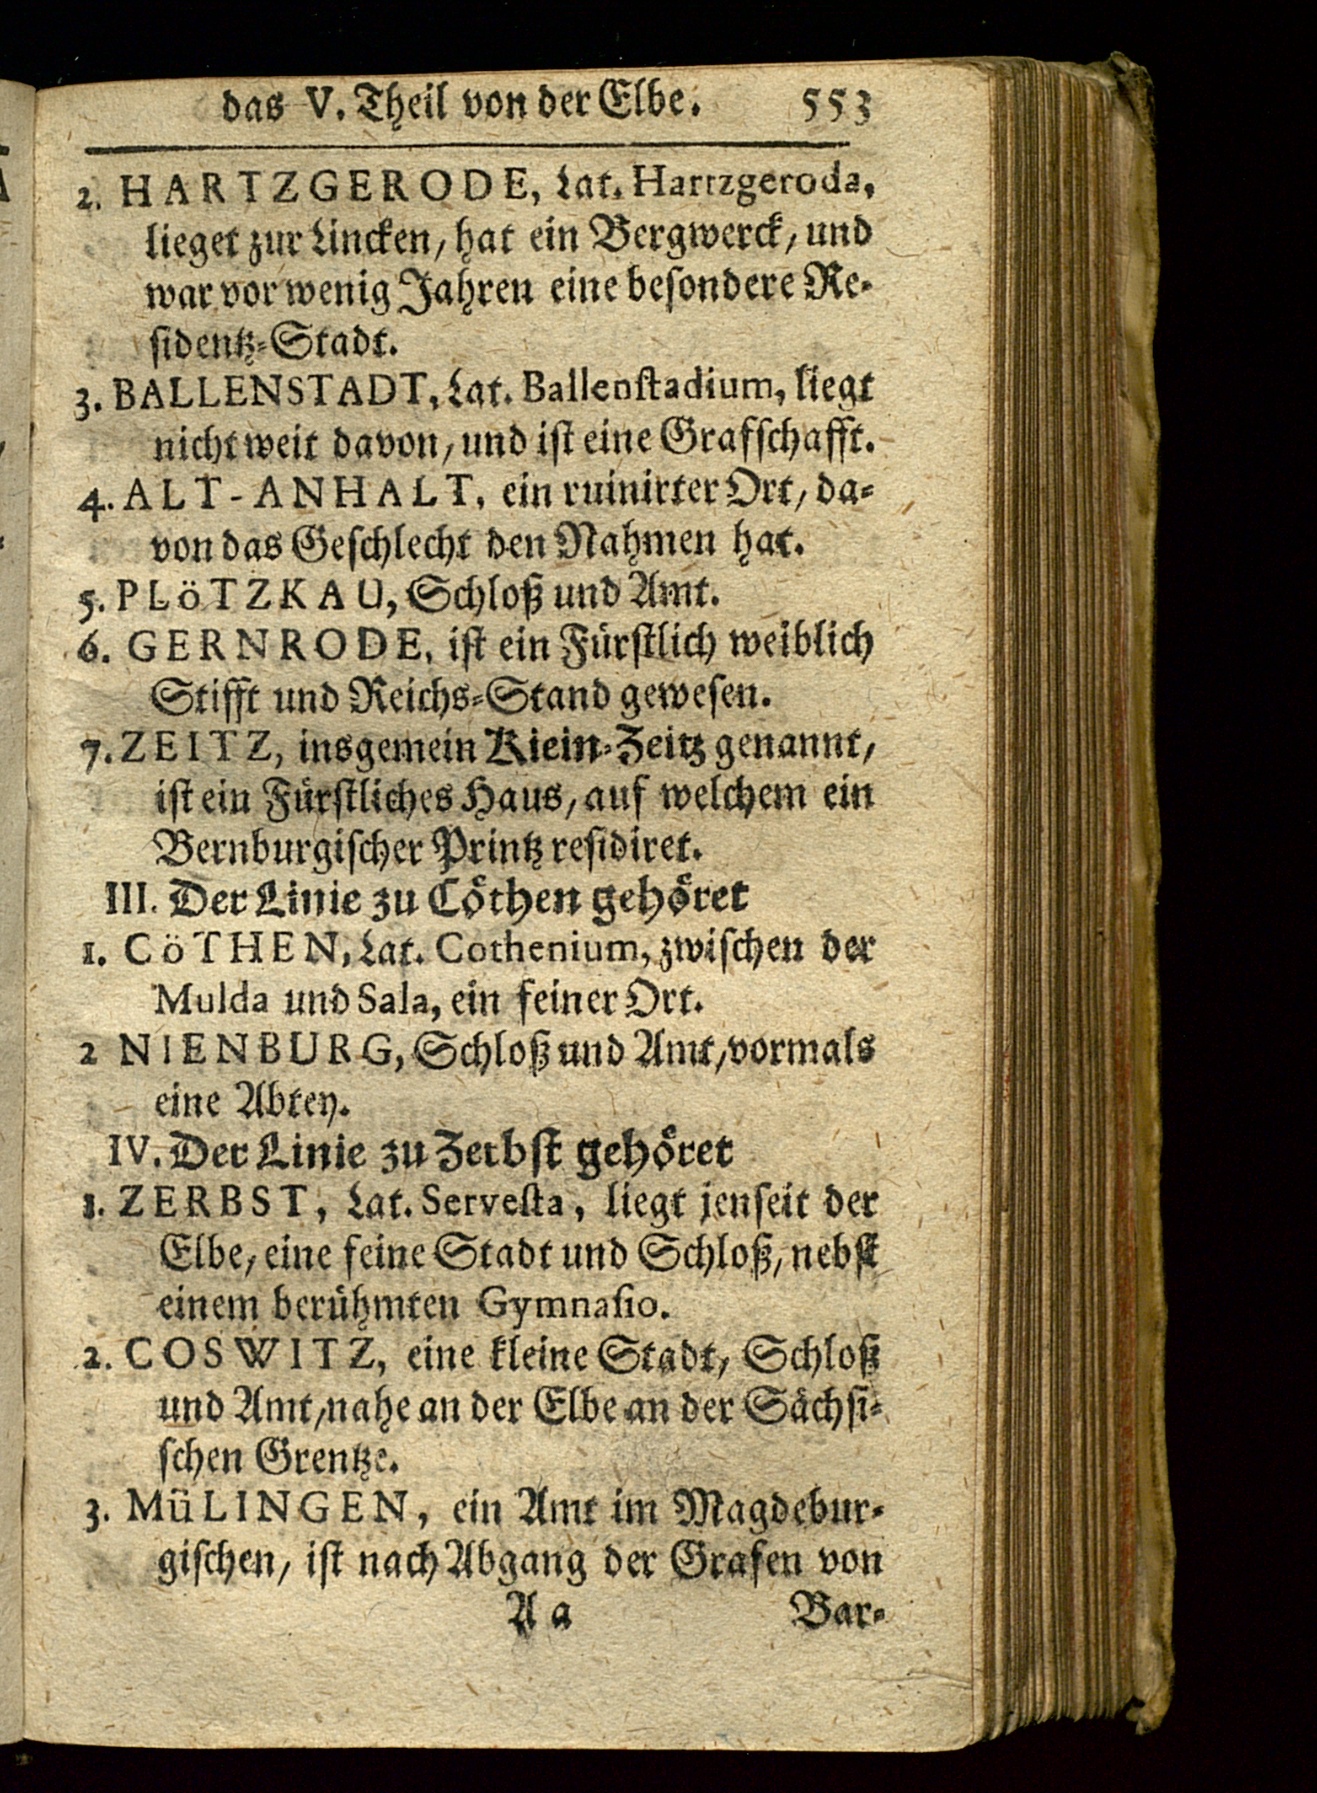 das V. Theil von der Elbe. 553
2. HARTZGERODE, Lat. Hartzgeroda,
lieget zur Lincken, hat ein Bergwerck, und
war vor wenig Jahren eine besondere Re-
sidentz-Stadt.
3. BALLENSTADT, Lat. Ballenstadium, liegt
nicht weit davon, und ist eine Grafschafft.
4. ALT-ANHALT, ein ruinirter Ort, da-
von das Geschlecht den Nahmen hat.
5. PLöTZKAU, Schloß und Amt.
6. GERNRODE, ist ein Fürstlich weiblich
Stifft und Reichs-Stand gewesen.
7. ZEITZ, insgemein Klein-Zeitz genannt,
ist ein Fürstliches Haus, auf welchem ein
Bernburgischer Printz residiret.
III. Der Linie zu Cöthen gehöret
1. CöTHEN, Lat. Cothenium, zwischen der
Mulda und Sala, ein feiner Ort.
2 NIENBURG, Schloß und Amt, vormals
eine Abtey.
IV. Der Linie zu Zerbst gehöret
1. ZERBST, Lat. Servesta, liegt jenseit der
Elbe, eine feine Stadt und Schloß, nebst
einem berühmten Gymnasio.
2. COSWITZ, eine kleine Stadt, Schloß
und Amt, nahe an der Elbe an der Sächsi-
schen Grentze.
3. MüLINGEN, ein Amt im Magdebur-
gischen, ist nach Abgang der Grafen von
A a Bar-